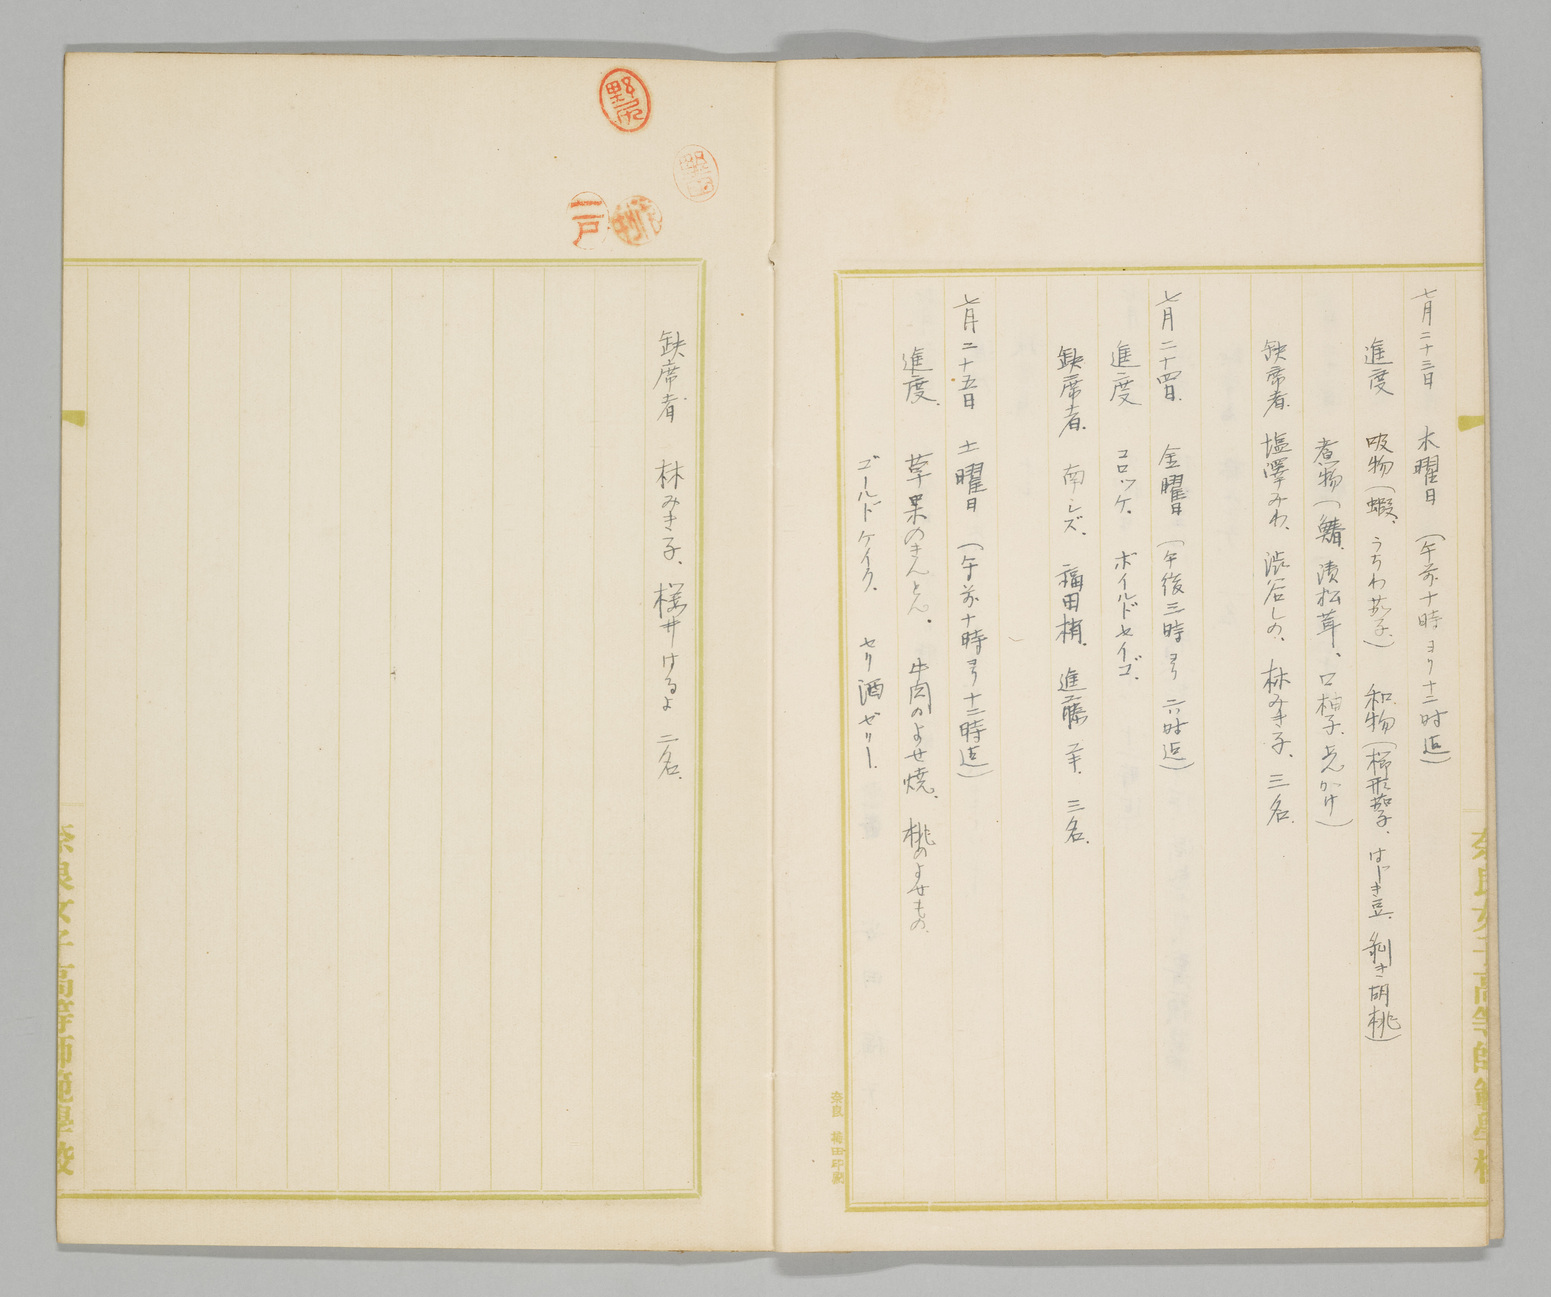 七月二十三日 木曜日（午前十時ヨリ十二时迠）
進度 吸物（蝦、うちわ茄子、） 和物（櫛形茄子、はじき豆、剥き胡桃）
煮物（鯖、漬松茸、口柏子、
缺席者 塩澤みわ、渋谷しの、林みき子、三名、
七月二十四日 金曜日（午後三時ヨリ 六时迠）
進度 コロッケ、ボイルドセイゴ、
缺席者、南シズ、福田梢、進藤 三名、
七月二十五日 土曜日（午前十時ヨリ十二時迠）
進度、草果のきんとん、牛肉のよせ焼、桃のよせもの、
ゴールドケイク、セリ酒ゼリー、
奈良 梅田印刷
奈良女子高等師範學校
野尻
一戸
缺席者 林みき子、櫻井けるよ 二名、
奈良女子高等師範學校